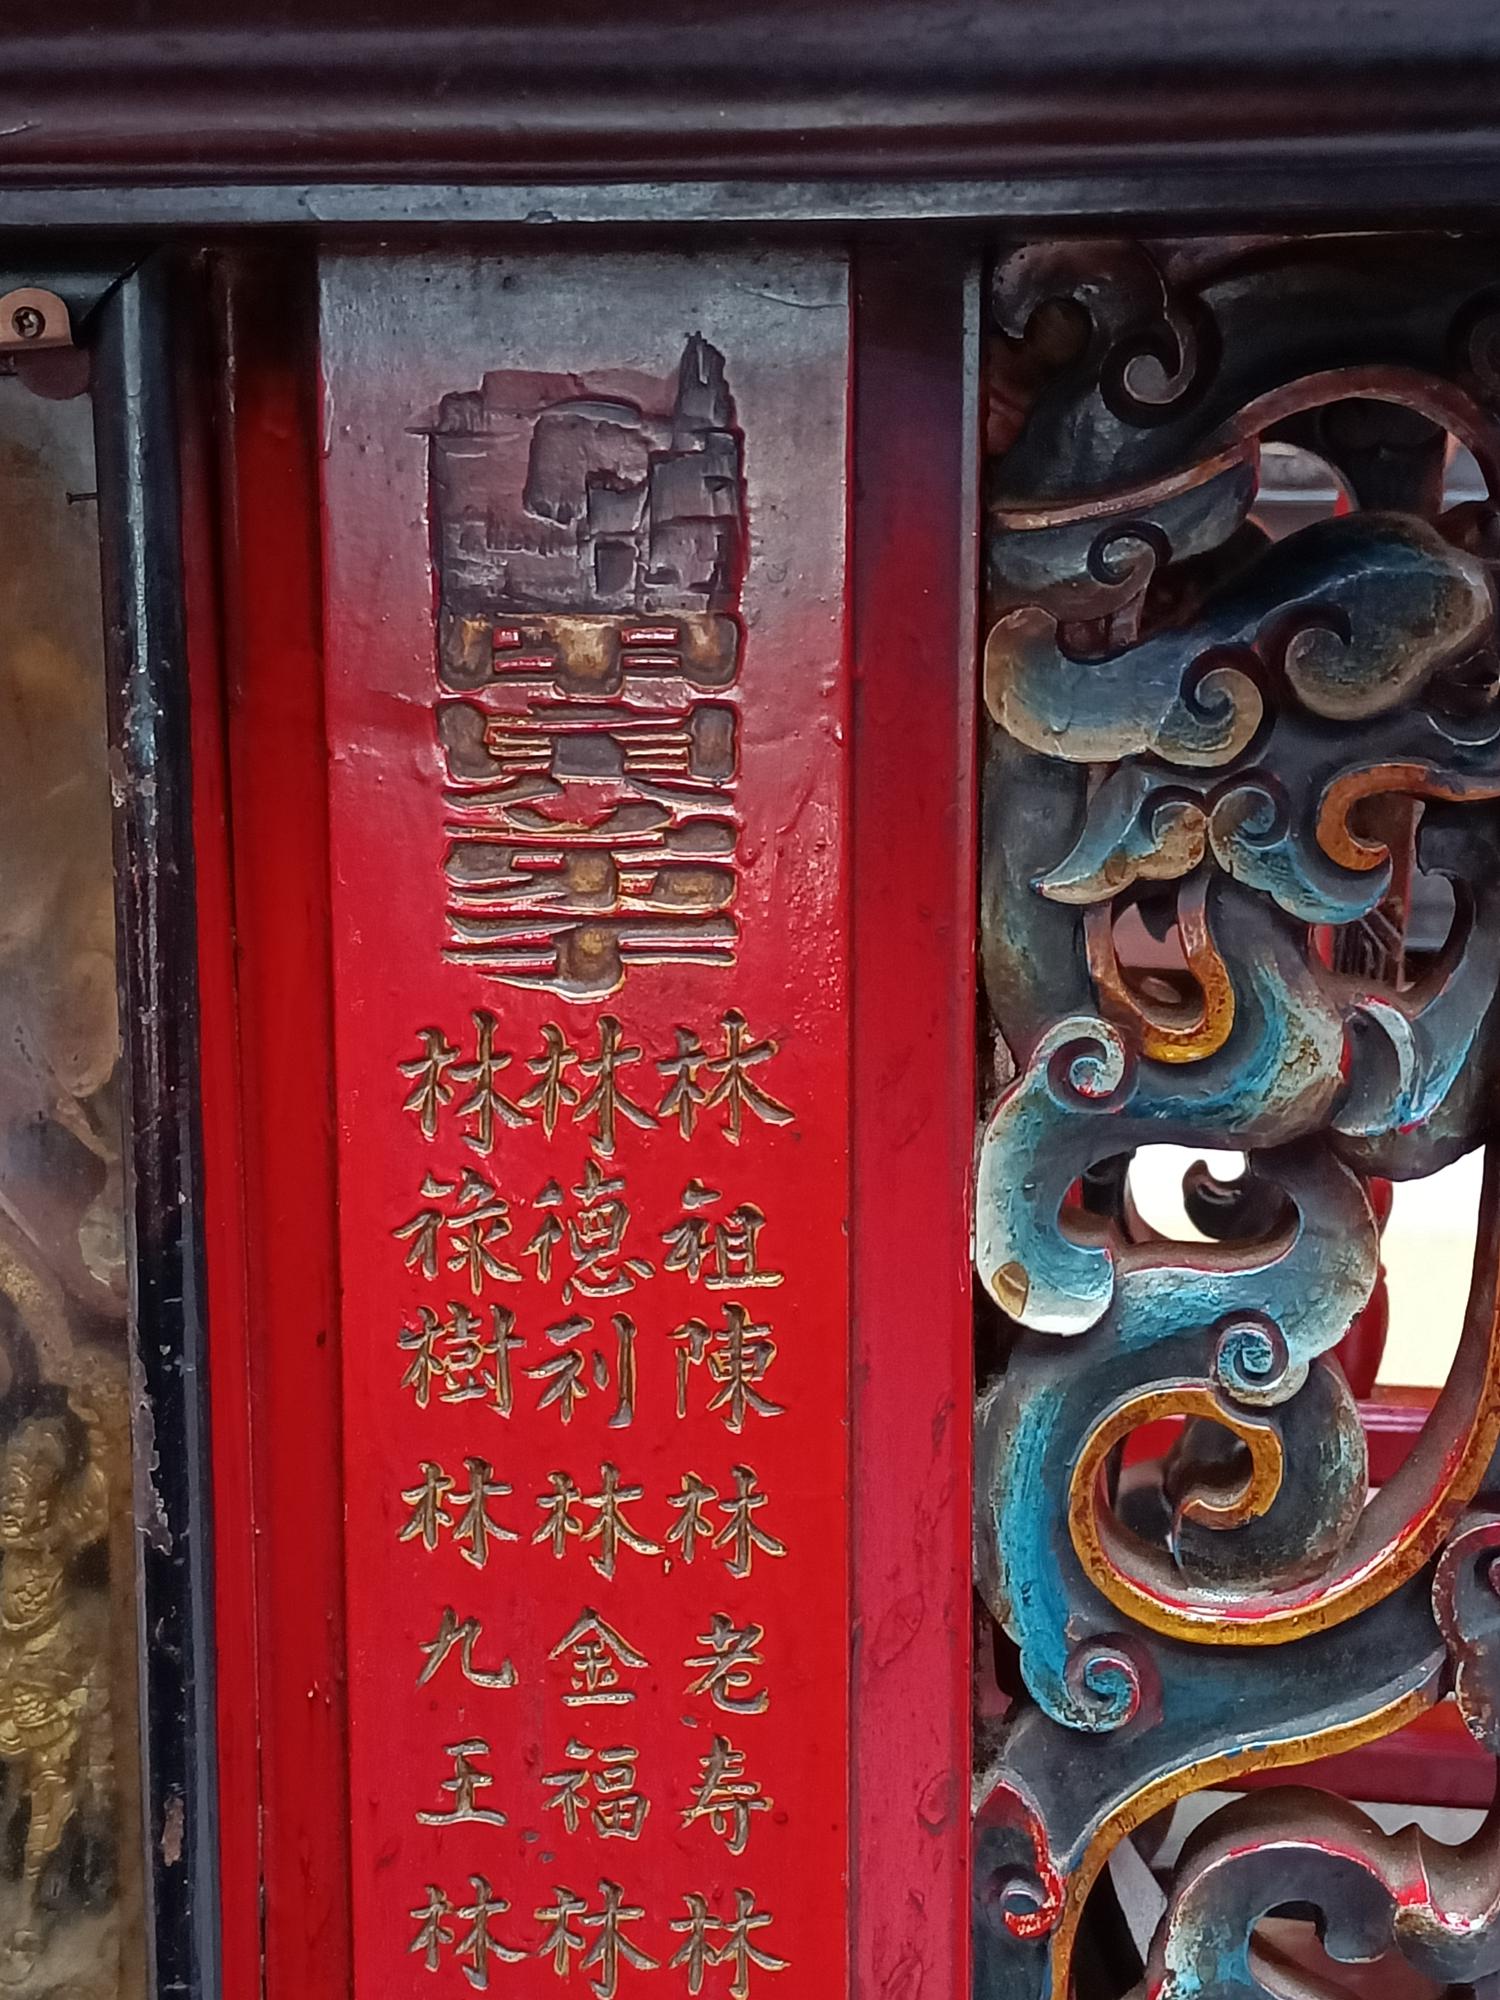 林祖陳林老寿林
林德利林金福林
林祿樹林九王林